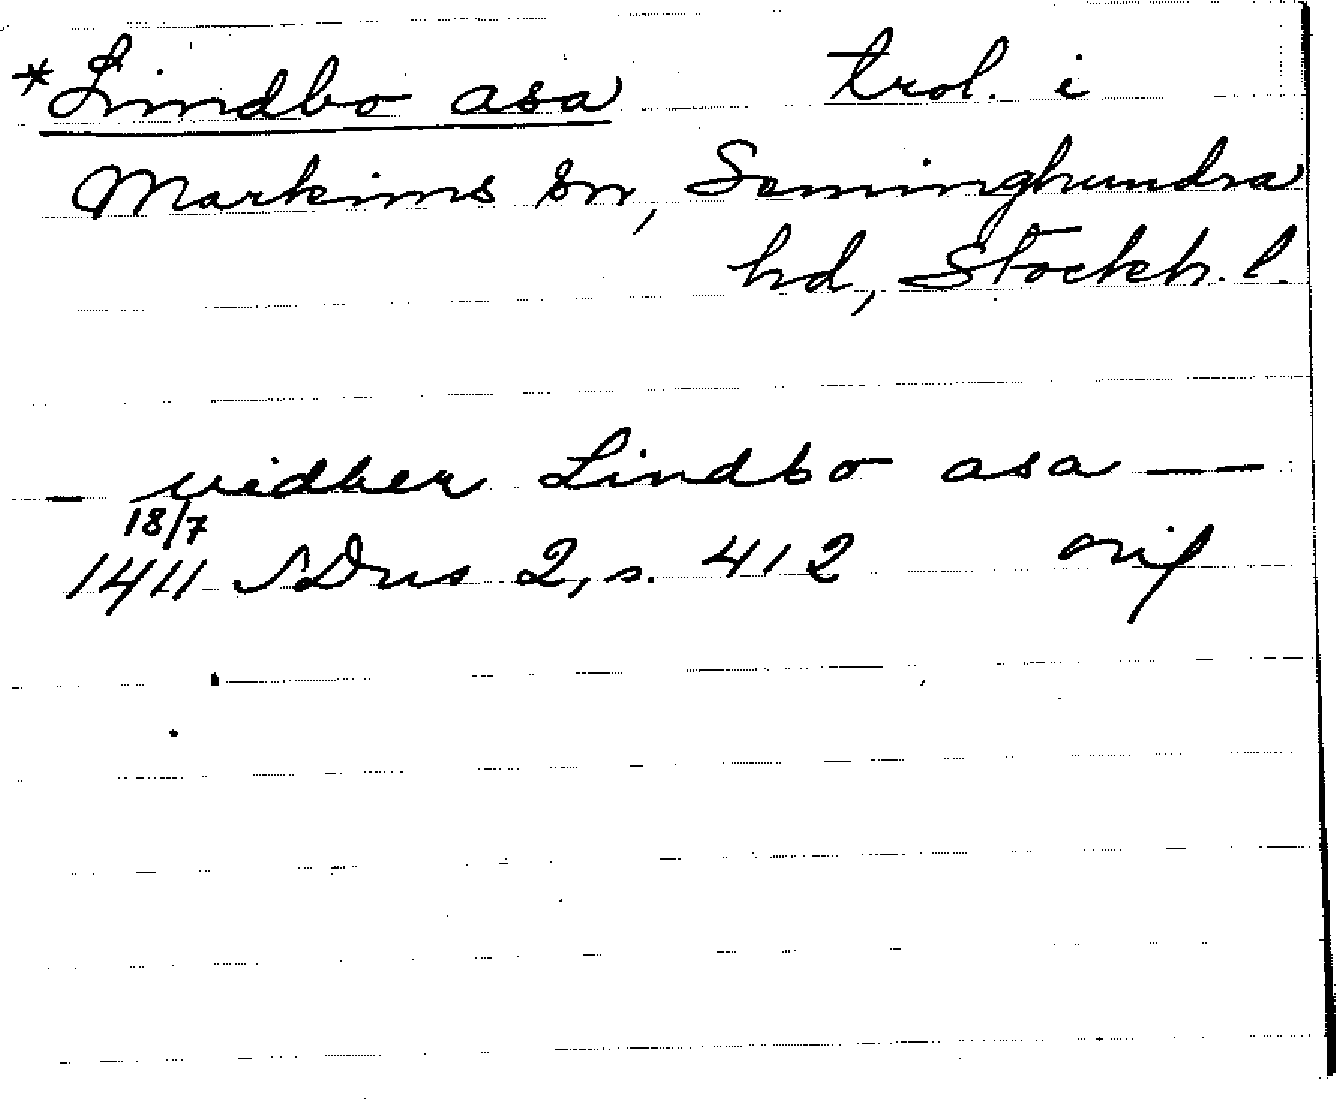 *Lindbo asa trol. i
Markims sn, Seminghundra
hd, Stockh. l.
- widher Lindbo asa —
18/7
1411 SDns 2, s. 412 orig